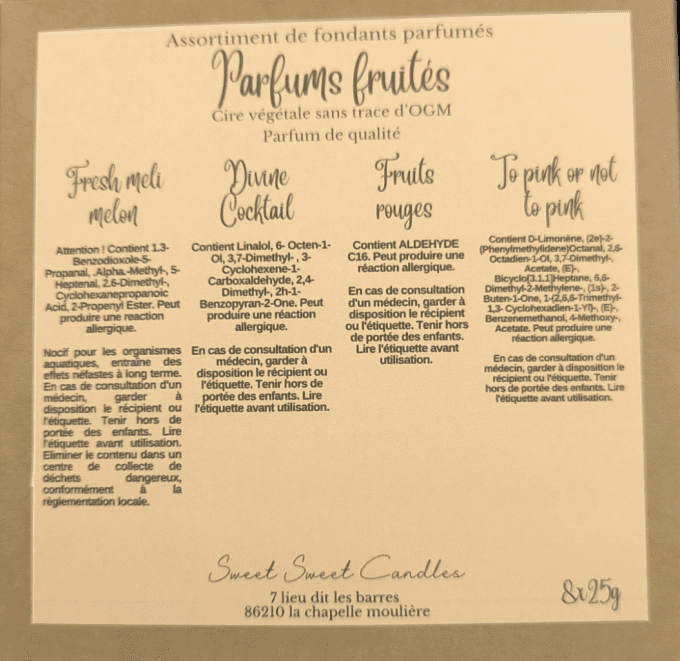 Assortiment de fondants parfumés
Parfums fruités
Cire végétale sans trace d'OGM
Parfum de qualité
Fresh meli
melon
Attention ! Contient 1.3-
Benzodioxole-5-
Propanal, .Alpha.-Methyl-, 5-
Heptenal, 2.6-Dimethyl-,
Cyclohexanepropanoic
Acid, 2-Propenyl Ester. Peut
produire une réaction
allergique.
Nocif pour les organismes
aquatiques, entraîne des
effets néfastes à long terme.
En cas de consultation d'un
médecin, garder à
disposition le récipient ou
l'étiquette. Tenir hors de
portée des enfants. Lire
l'étiquette avant utilisation.
Eliminer le contenu dans un
centre de collecte de
déchets dangereux,
conformément à la
règlementation locale.
Divine
Cocktail
Contient Linalol, 6- Octen-1-
Ol, 3,7-Dimethyl- , 3-
Cyclohexene-1-
Carboxaldehyde, 2,4-
Dimethyl-, 2h-1-
Benzopyran-2-One. Peut
produire une réaction
allergique.
En cas de consultation d'un
médecin, garder à
disposition le récipient ou
l'étiquette. Tenir hors de
portée des enfants. Lire
l'étiquette avant utilisation.
Fruits
rouges
Contient ALDEHYDE
C16. Peut produire une
réaction allergique.
En cas de consultation
d'un médecin, garder à
disposition le récipient
ou l'étiquette. Tenir hors
de portée des enfants.
Lire l'étiquette avant
utilisation.
To pink or not
to pink
Contient D-Limonène, (2e)-2-
(Phenylmethylidene)Octanal, 2,6-
Octadien-1-Ol, 3,7-Dimethyl-,
Acetate, (E)-,
Bicyclo[3.1.1]Heptane, 6,6-
Dimethyl-2-Methylene-, (1s)-, 2-
Buten-1-One, 1-(2,6,6-Trimethyl-
1,3- Cyclohexadien-1-Yl)-, (E)-,
Benzenemethanol, 4-Methoxy-,
Acetate. Peut produire une
réaction allergique.
En cas de consultation d'un
médecin, garder à disposition le
récipient ou l'étiquette. Tenir
hors de portée des enfants. Lire
l'étiquette avant utilisation.
Sweet Sweet Candles
7 lieu dit les barres
86210 la chapelle moulière
8x25g